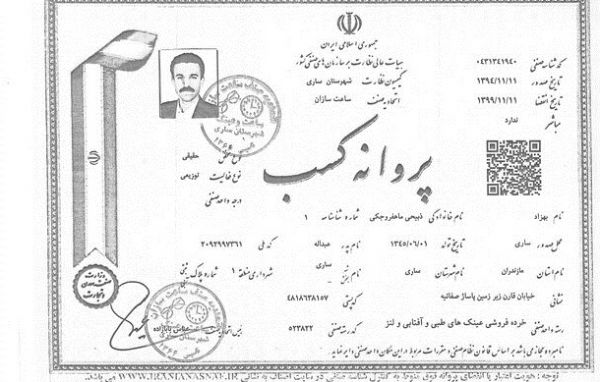 جمهوری اسلامی ایران
هیات عالی نظارت بر سازمان های صنفی کشور
کمیسیون نظارت شهرستان ساری
اتحادیه صنف ساعت سازان
کد شناسه صنفی ۰۴۳۱۳۴۱۹۴۰
تاریخ صدور ۱۳۹۴/۱۱/۱۱
تاریخ انقضا ۱۳۹۹/۱۱/۱۱
مباشر ندارد
پروانه کسب
حقیقی
نوع فعالیت توزیعی
درجه واحد صنفی
نام بهزاد نام خانوادگی ذبیحی ماهفروجکی شماره شناسنامه ۱
محل صدور ساری تاریخ تولد ۱۳۴۵/۰۶/۰۱ نام پدر عبداله کد ملی ۲۰۹۲۹۹۷۳۶۱
نام استان مازندران نام شهرستان ساری نام بخش ساری شهرداری منطقه ۱ شماره پلاک ثبتی
نشانی خیابان قارن زیر زمین پاساژ صفائیه کد پستی ۴۸۱۶۶۳۸۱۵۷
رسته واحد صنفی خرده فروشی عینک های طبی و آفتابی و لنز کد رسته صنفی ۵۲۳۸۲۲
نامبرده مجاز می باشد بر اساس قانون نظام صنفی و مقررات مربوط در این مکان واحد صنفی دایر نماید
رئیس اتحادیه
وزارت صنعت، معدن و تجارت
ساعت و عینک
شهرستان ساری
WWW.IRANIANASNAF.IR